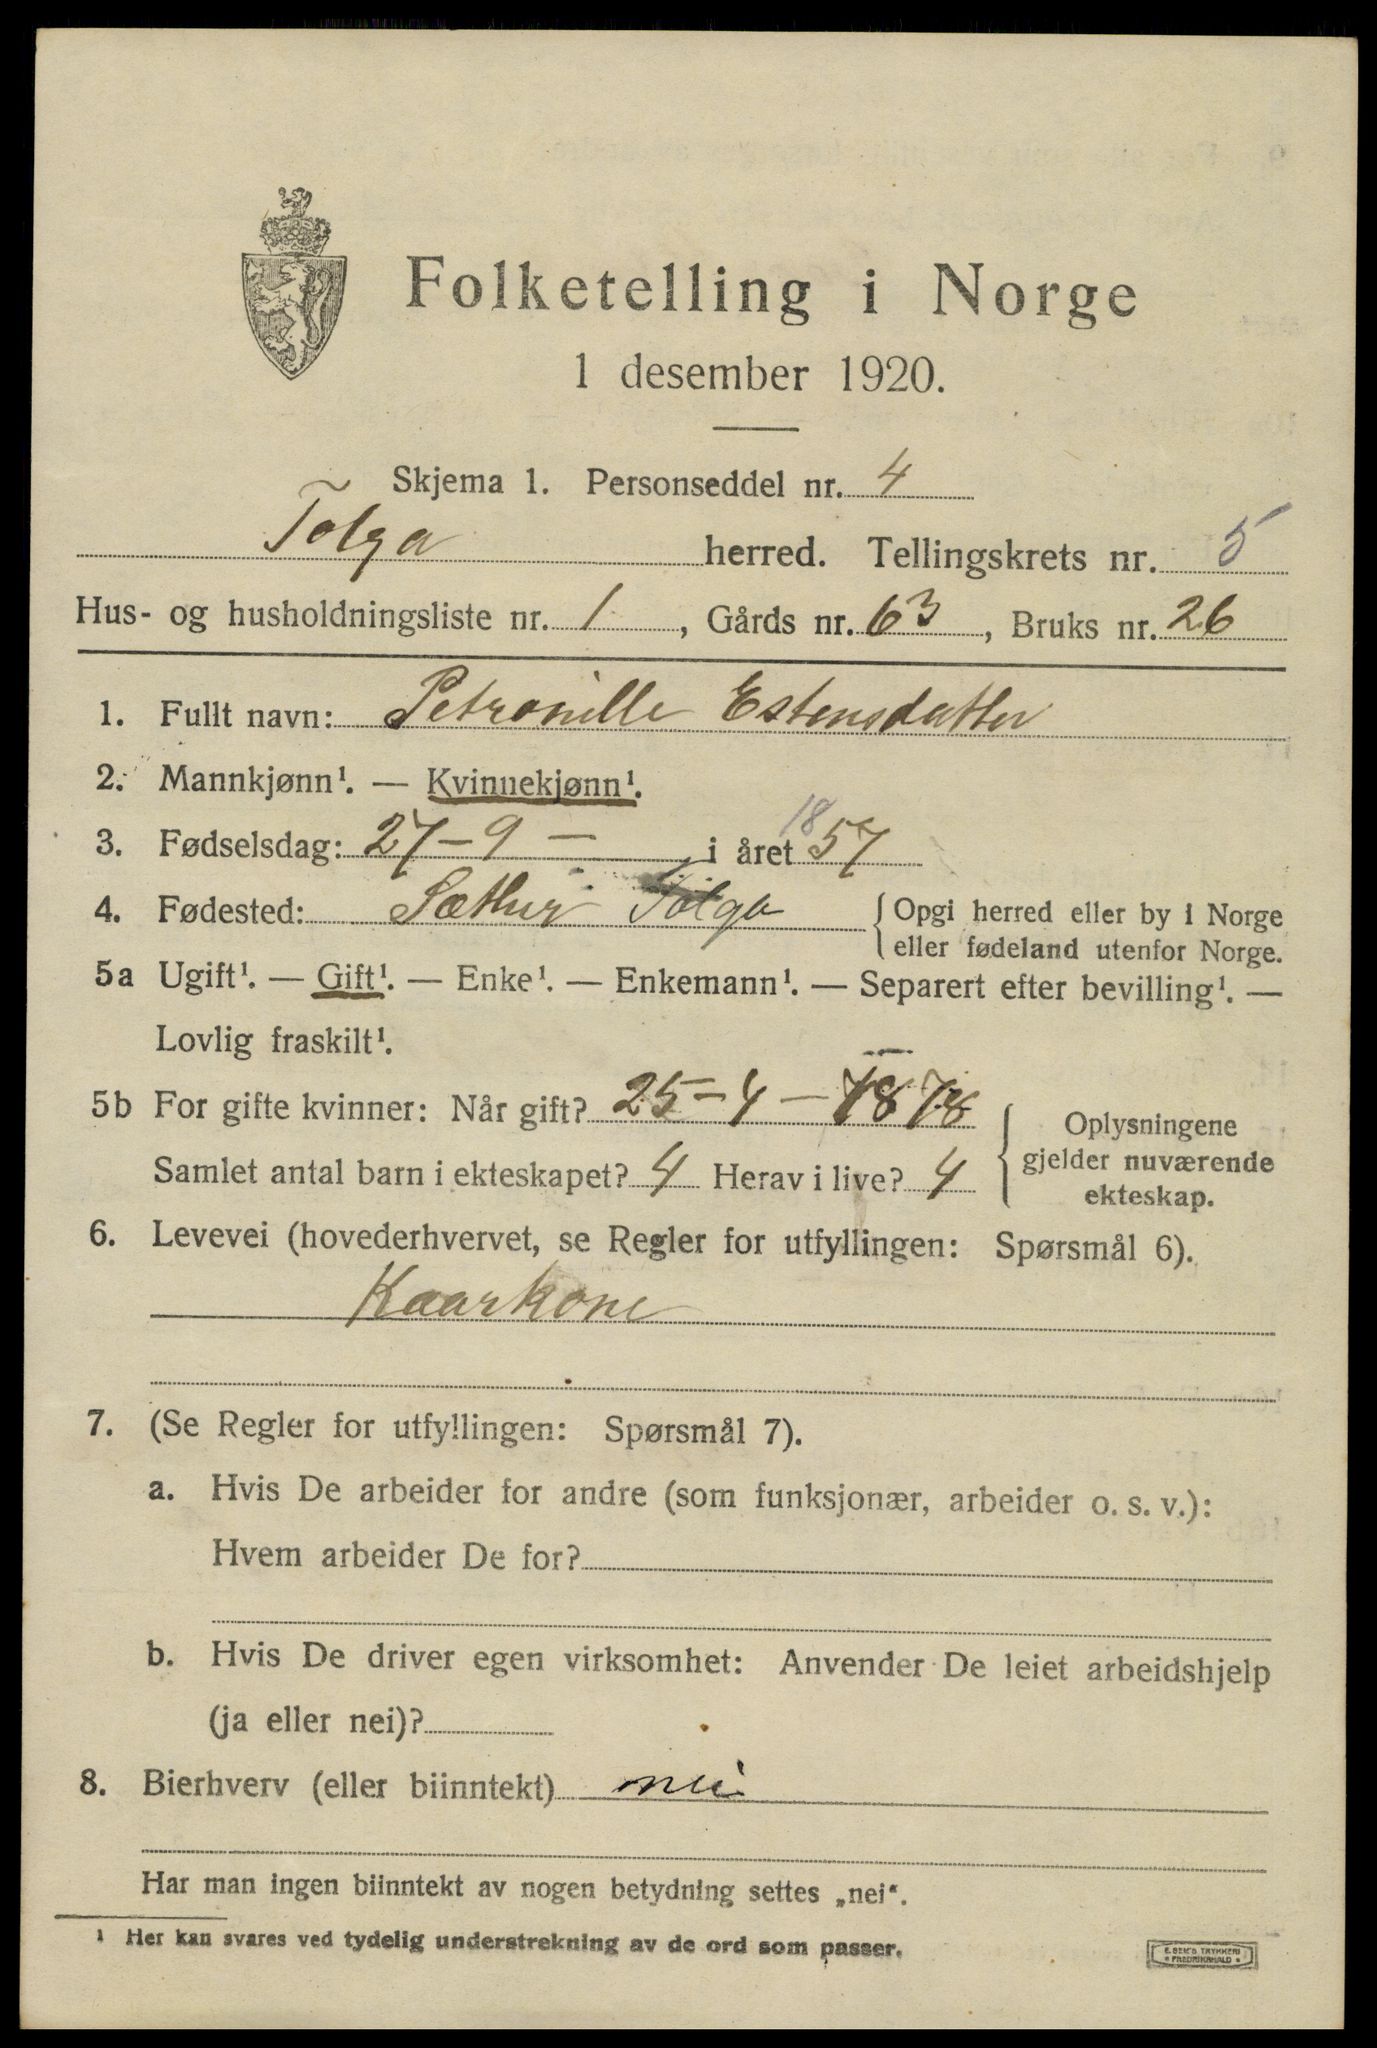 Folketelling i Norge
1 desember 1920.
Skjema 1. Personseddel nr. 4
Tolga herred. Tellingskrets nr. 5
Hus- og husholdningsliste nr. 1, Gårds nr. 63, Bruks nr. 26
1. Fullt navn: Petronille Estensdatter
2. Mannkjønn¹. — Kvinnekjønn¹.
3. Fødselsdag: 27-9 — i året 1857
4. Fødested: Sæther Tolga {Opgi herred eller by i Norge
eller fødeland utenfor Norge.
5a Ugift¹. — Gift¹. — Enke¹. — Enkemann¹. — Separert efter bevilling¹. —
Lovlig fraskilt¹.
5b For gifte kvinner: Når gift? 25-4-1878
Samlet antal barn i ekteskapet? 4 Herav i live? 4
Oplysningene
gjelder nuværende
ekteskap.
6. Levevei (hovederhvervet, se Regler for utfyllingen: Spørsmål 6).
Kaarkone
7. (Se Regler for utfyllingen: Spørsmål 7).
a. Hvis De arbeider for andre (som funksjonær, arbeider o. s. v.):
Hvem arbeider De for?
b. Hvis De driver egen virksomhet: Anvender De leiet arbeidshjelp
(ja eller nei)?
8. Bierhverv (eller biinntekt) nei
Har man ingen biinntekt av nogen betydning settes „nei“.
¹ Her kan svares ved tydelig understrekning av de ord som passer.
E. SEM'S TRYKKERI
FREDRIKSHALD